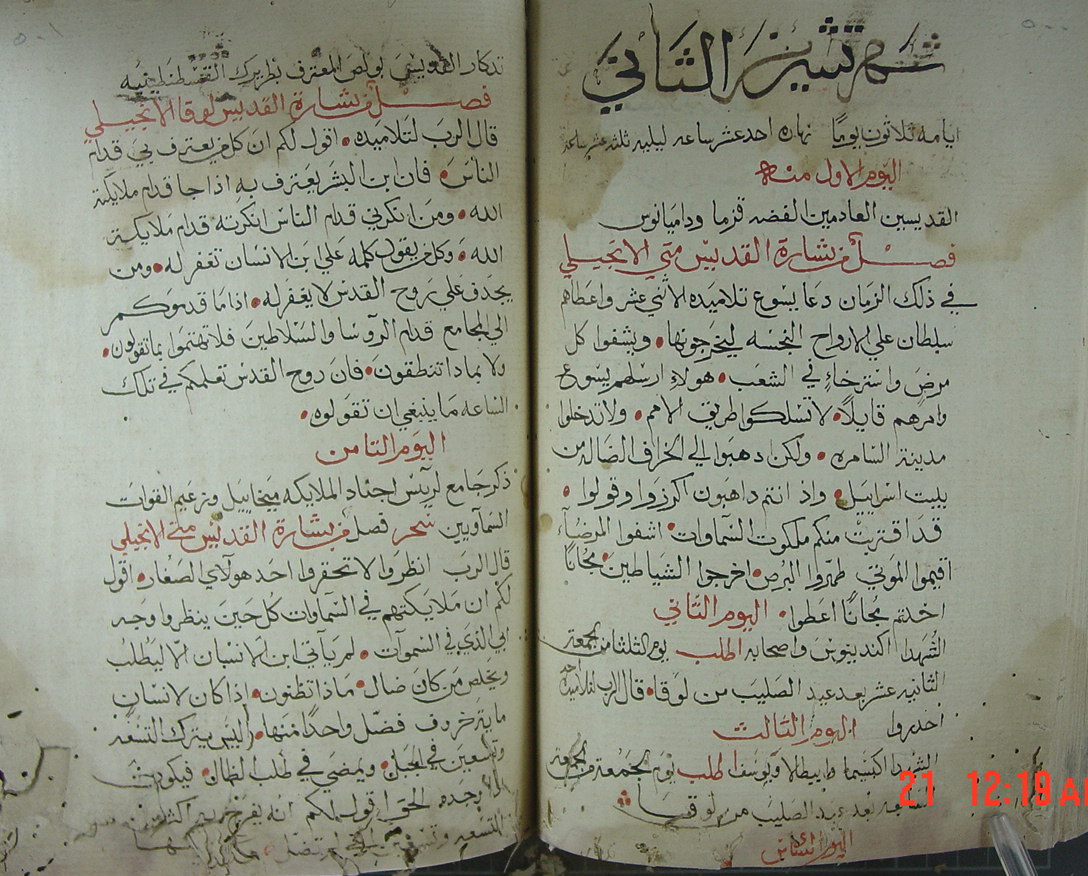 شهر تشرين الثاني
ايامه ثلاثون يومًا نهاره احد عشر ساعه ليليه ثلثه عشر ساعة
اليوم الاول منه
القديسين العادمين الفضه قزما وداميانوس
فصل من بشارة القديس متي الانجيلي
في ذلك الزمان دعا يسوع تلاميذه الاثني عشر واعطاهم
سلطان علي الارواح النجسه ليخرجونها • ويشفوا كل
مرض واسترخاءٍ في الشعب • هولاءِ ارسلهم يسوع
وامرهم قايلاً • لا تسلكوا طريق الامم • ولا تدخلوا
مدينة السامره • ولكن دهبوا الي الخراف الضاله من
بيت اسراييل • واذ انتم داهبون اكرزوا وقولوا •
قد اقتربت منكم ملكوت السماوات • اشفوا المرضاء
اقيموا الموتي طهروا البرص • اخرجوا الشياطين • مجانًا
اخدتم مجانًا اعطوا • اليوم الثاني
الشهدا اكندينوس واصحابه اطلب يوم الثلثا من الجمعة
الثانيه عشر بعد عيد الصليب من لوقا • قال الرب لتلاميده
احدروا اليوم الثالث
الشهدا اكبسيما وايطالا ويوسف اطلب يوم الجمعة من الجمعة
بعد عيد الصليب من لوقا
تدكار القديس بولص المعترف بطريرك القسطنطينيه
فصل من بشارة القديس لوقا الانجيلي
قال الرب لتلاميده • اقول لكم ان كل من يعترف بي قدام
الناس • فان بن البشر يعترف به اذا جا قدام ملايكة
الله • ومن انكرني قدام الناس انكرته قدام ملايكة
الله • وكل من يقول كلمه علي ابن الانسان تغفر له • ومن
يجدف علي روح القدس لا يغفر له • اذا ما قدموكم
الي المجامع قدام الروسا والسلاطين فلا تهتموا بما تقولون •
ولا بمادا تنطقون • فان روح القدس تعلمكم في تلك
الساعه ما ينبغي ان تقولوه •
اليوم التامن
ذكر جامع لرييس اجناد الملايكه ميخاييل وزعيم القوات
السماويين سحر فصل من بشارة القديس متي الانجيلي
قال الرب انظروا لا تحقروا احد هولاي الصغار • اقول
لكم ان ملايكتهم في السماوات كل حين ينظروا وجه
ابي الذي في السموات • لم ياتي ابن الانسان الا ليطلب
ويخلص من كان ضال • مادا تظنون • اذا كان لانسان
ماية خروف فضل واحدًا منها • اليس يترك التسعه
وتسعين في الجبل • ويمضي في طلب الضال • فيكون
وجده الحق اقول لكم انه يفرح به اكثر من
التسعه وتسعين